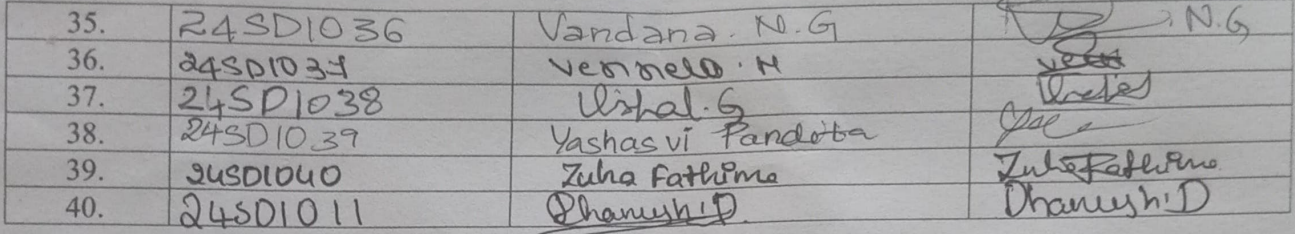 35. 24SD1036 Vandana. N.G N.G
36. 24SD1037 Vennela. M
37. 24SD1038 Vishal. G
38. 24SD1039 Yashasvi Pandota
39. 24SD1040 Zuha Fathima Zuha Fathima
40. 24SD1011 Dhanush.D Dhanush.D